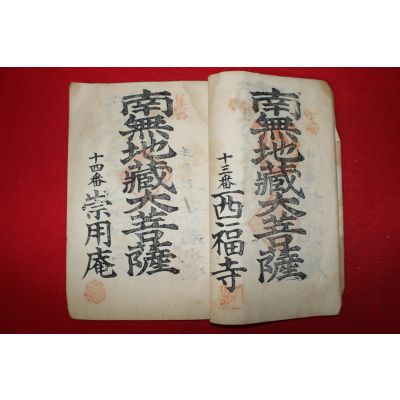 南無地藏大菩薩
十三番 西福寺
南無地藏大菩薩
十四番 崇用庵